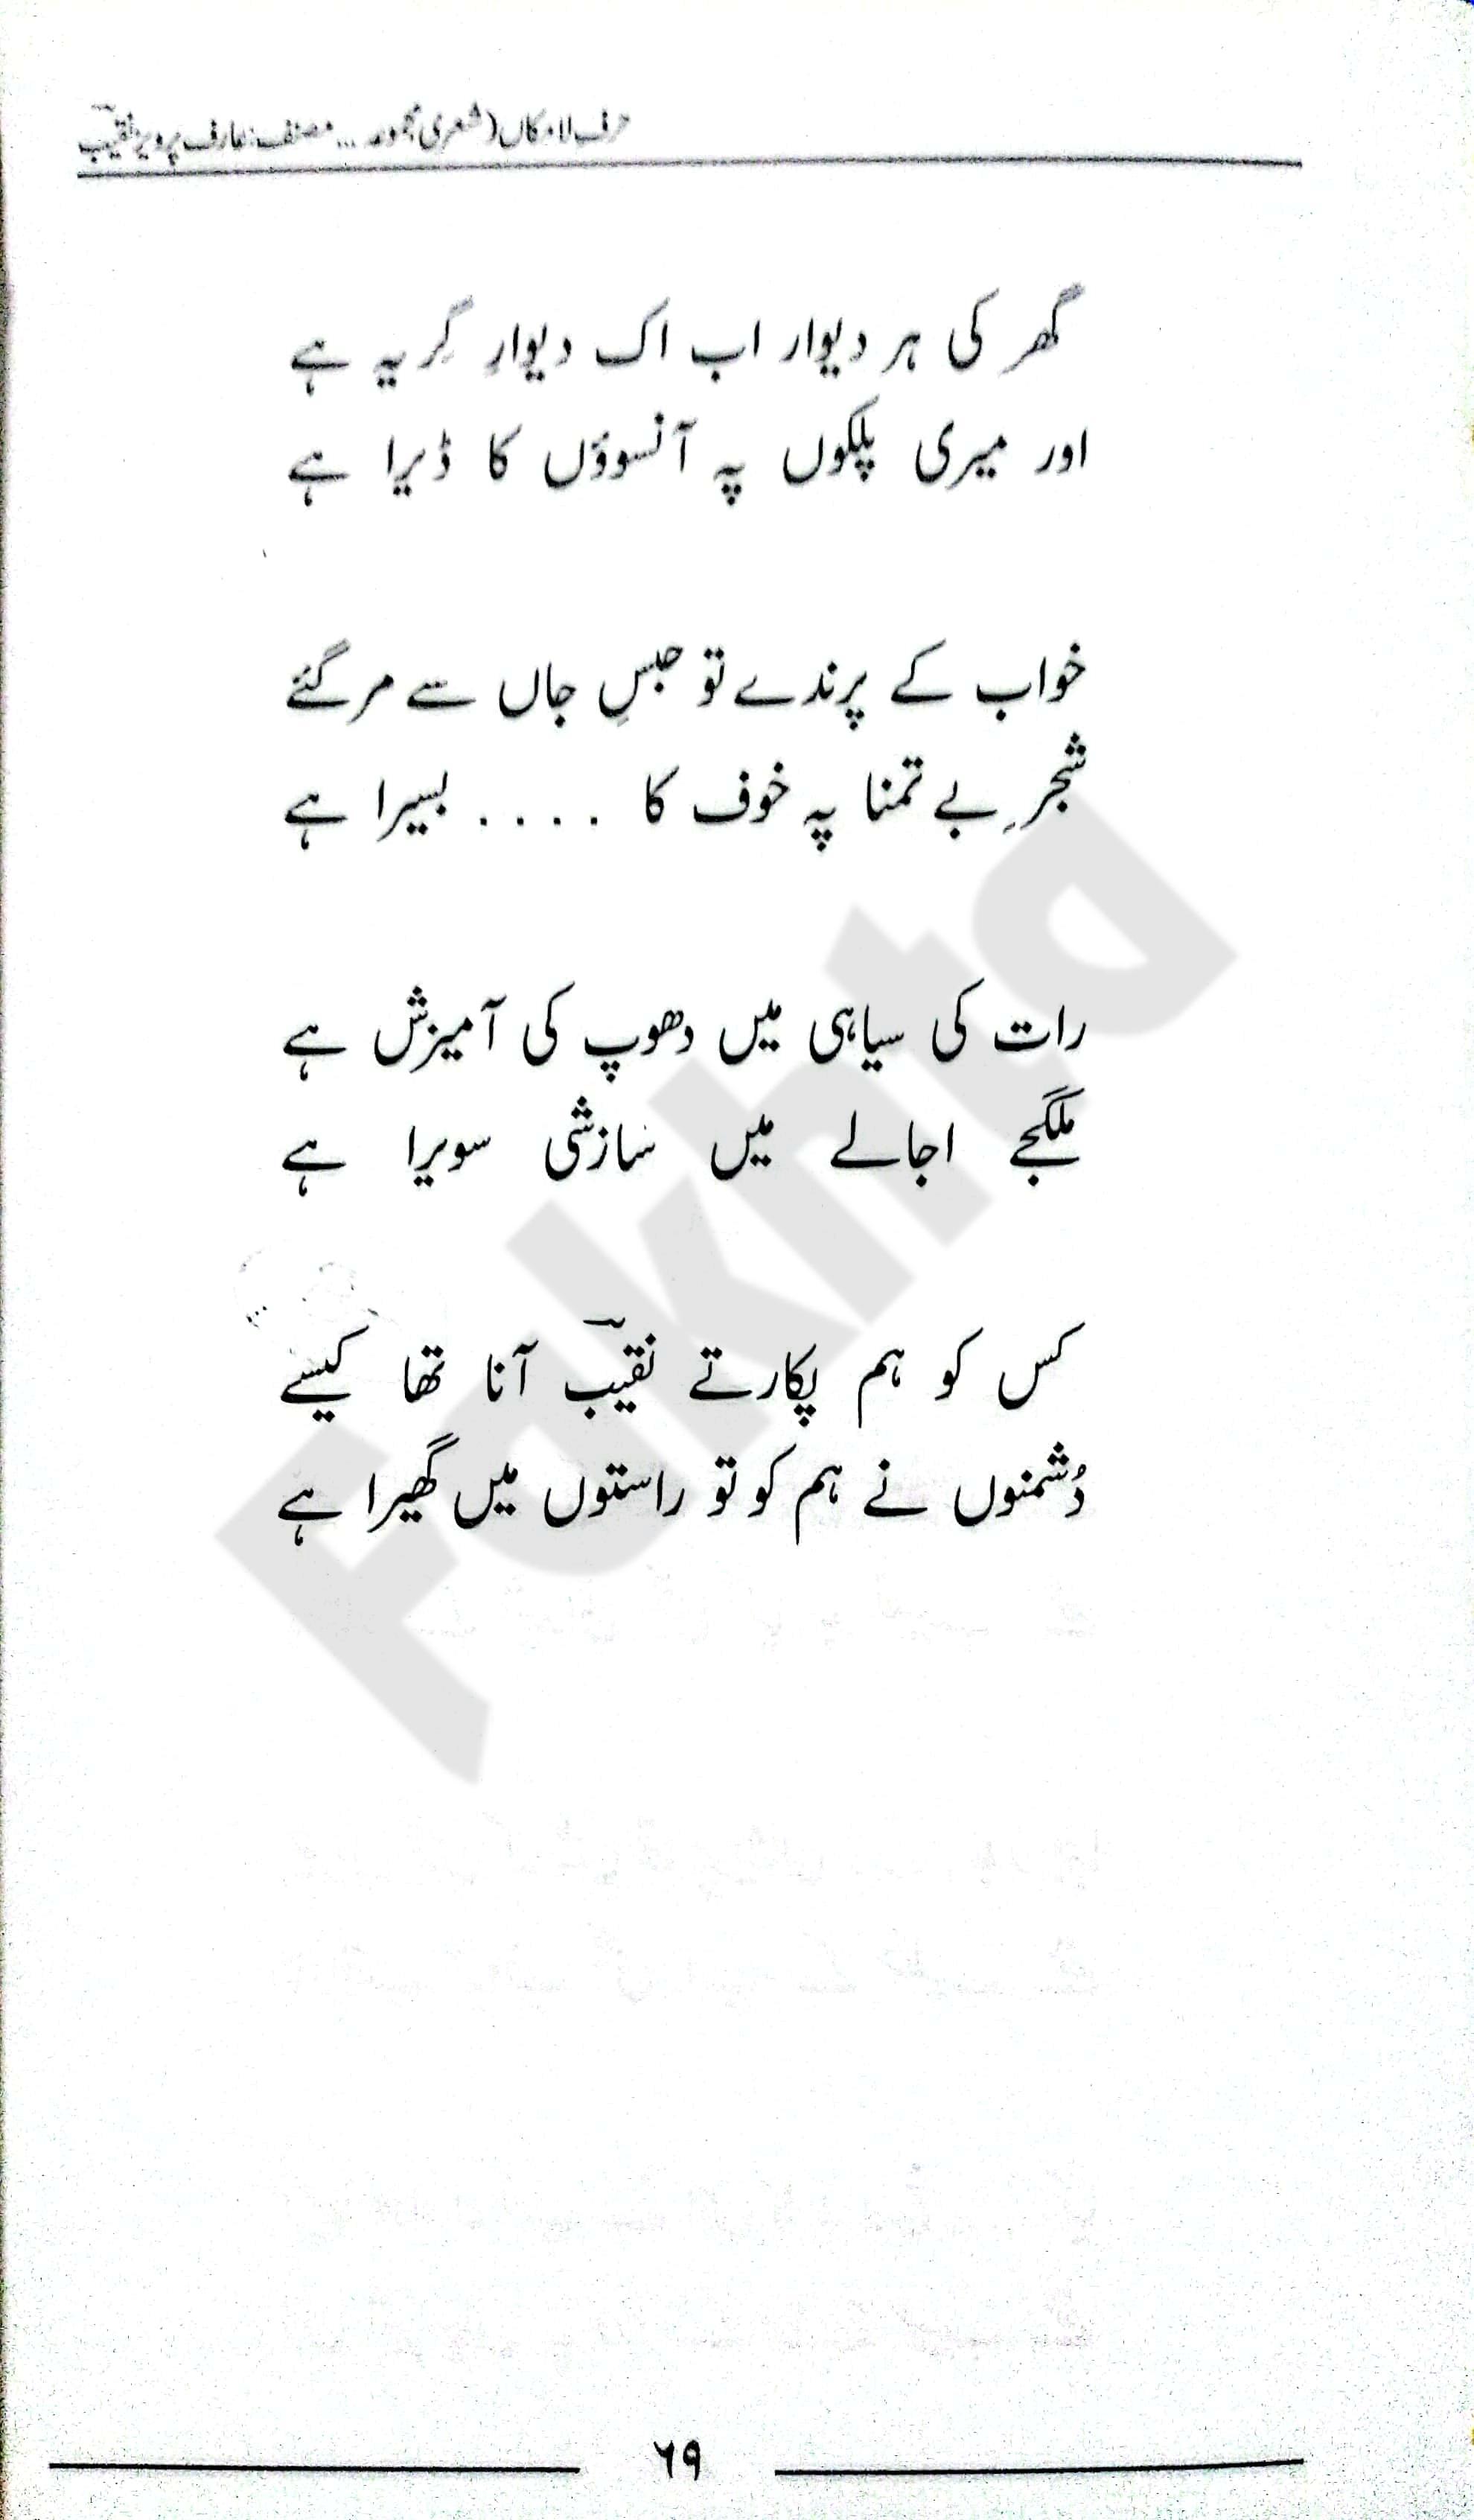 حرف لامکاں (شعری مجموعہ ... مصنف: عارف پرویز نقیبؔ
گھر کی ہر دیوار اب اک دیوارِ گِریہ ہے
اور میری پلکوں پہ آنسوؤں کا ڈیرا ہے
خواب کے پرندے تو حبسِ جاں سے مر گئے
شجرِ بے تمنا پہ خوف کا .... بسیرا ہے
رات کی سیاہی میں دھوپ کی آمیزش ہے
ملگجے اجالے میں سازشی سویرا ہے
کس کو ہم پکارتے نقیبؔ آنا تھا کیسے
دُشمنوں نے ہم کو تو راستوں میں گھیرا ہے
Fakhta
۶۹